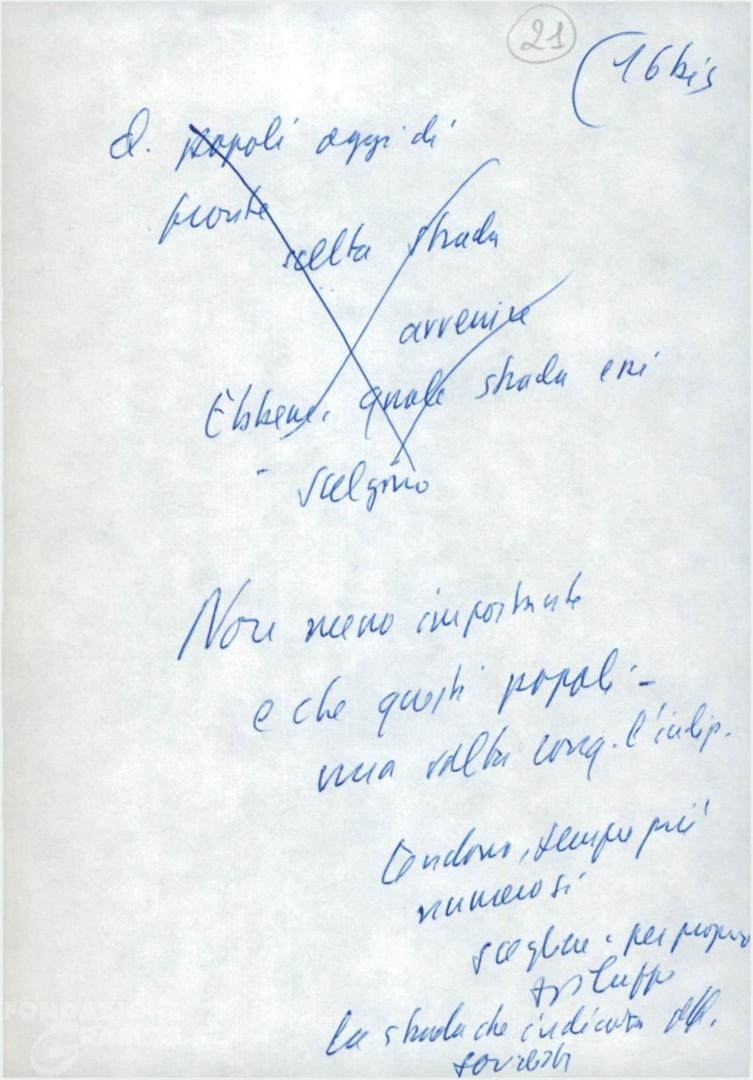 21
(16 bis
d. popoli oggi di
fronte
scelta strada
avvenire
Ebbene, quale strada essi
- scelgono
Non meno importante
e che questi popoli -
una volta conq. l'indip.
tendono, sempre più
numerosi
scegliere - per proprio
sviluppo
la strada che indicata
FONDAZIONE